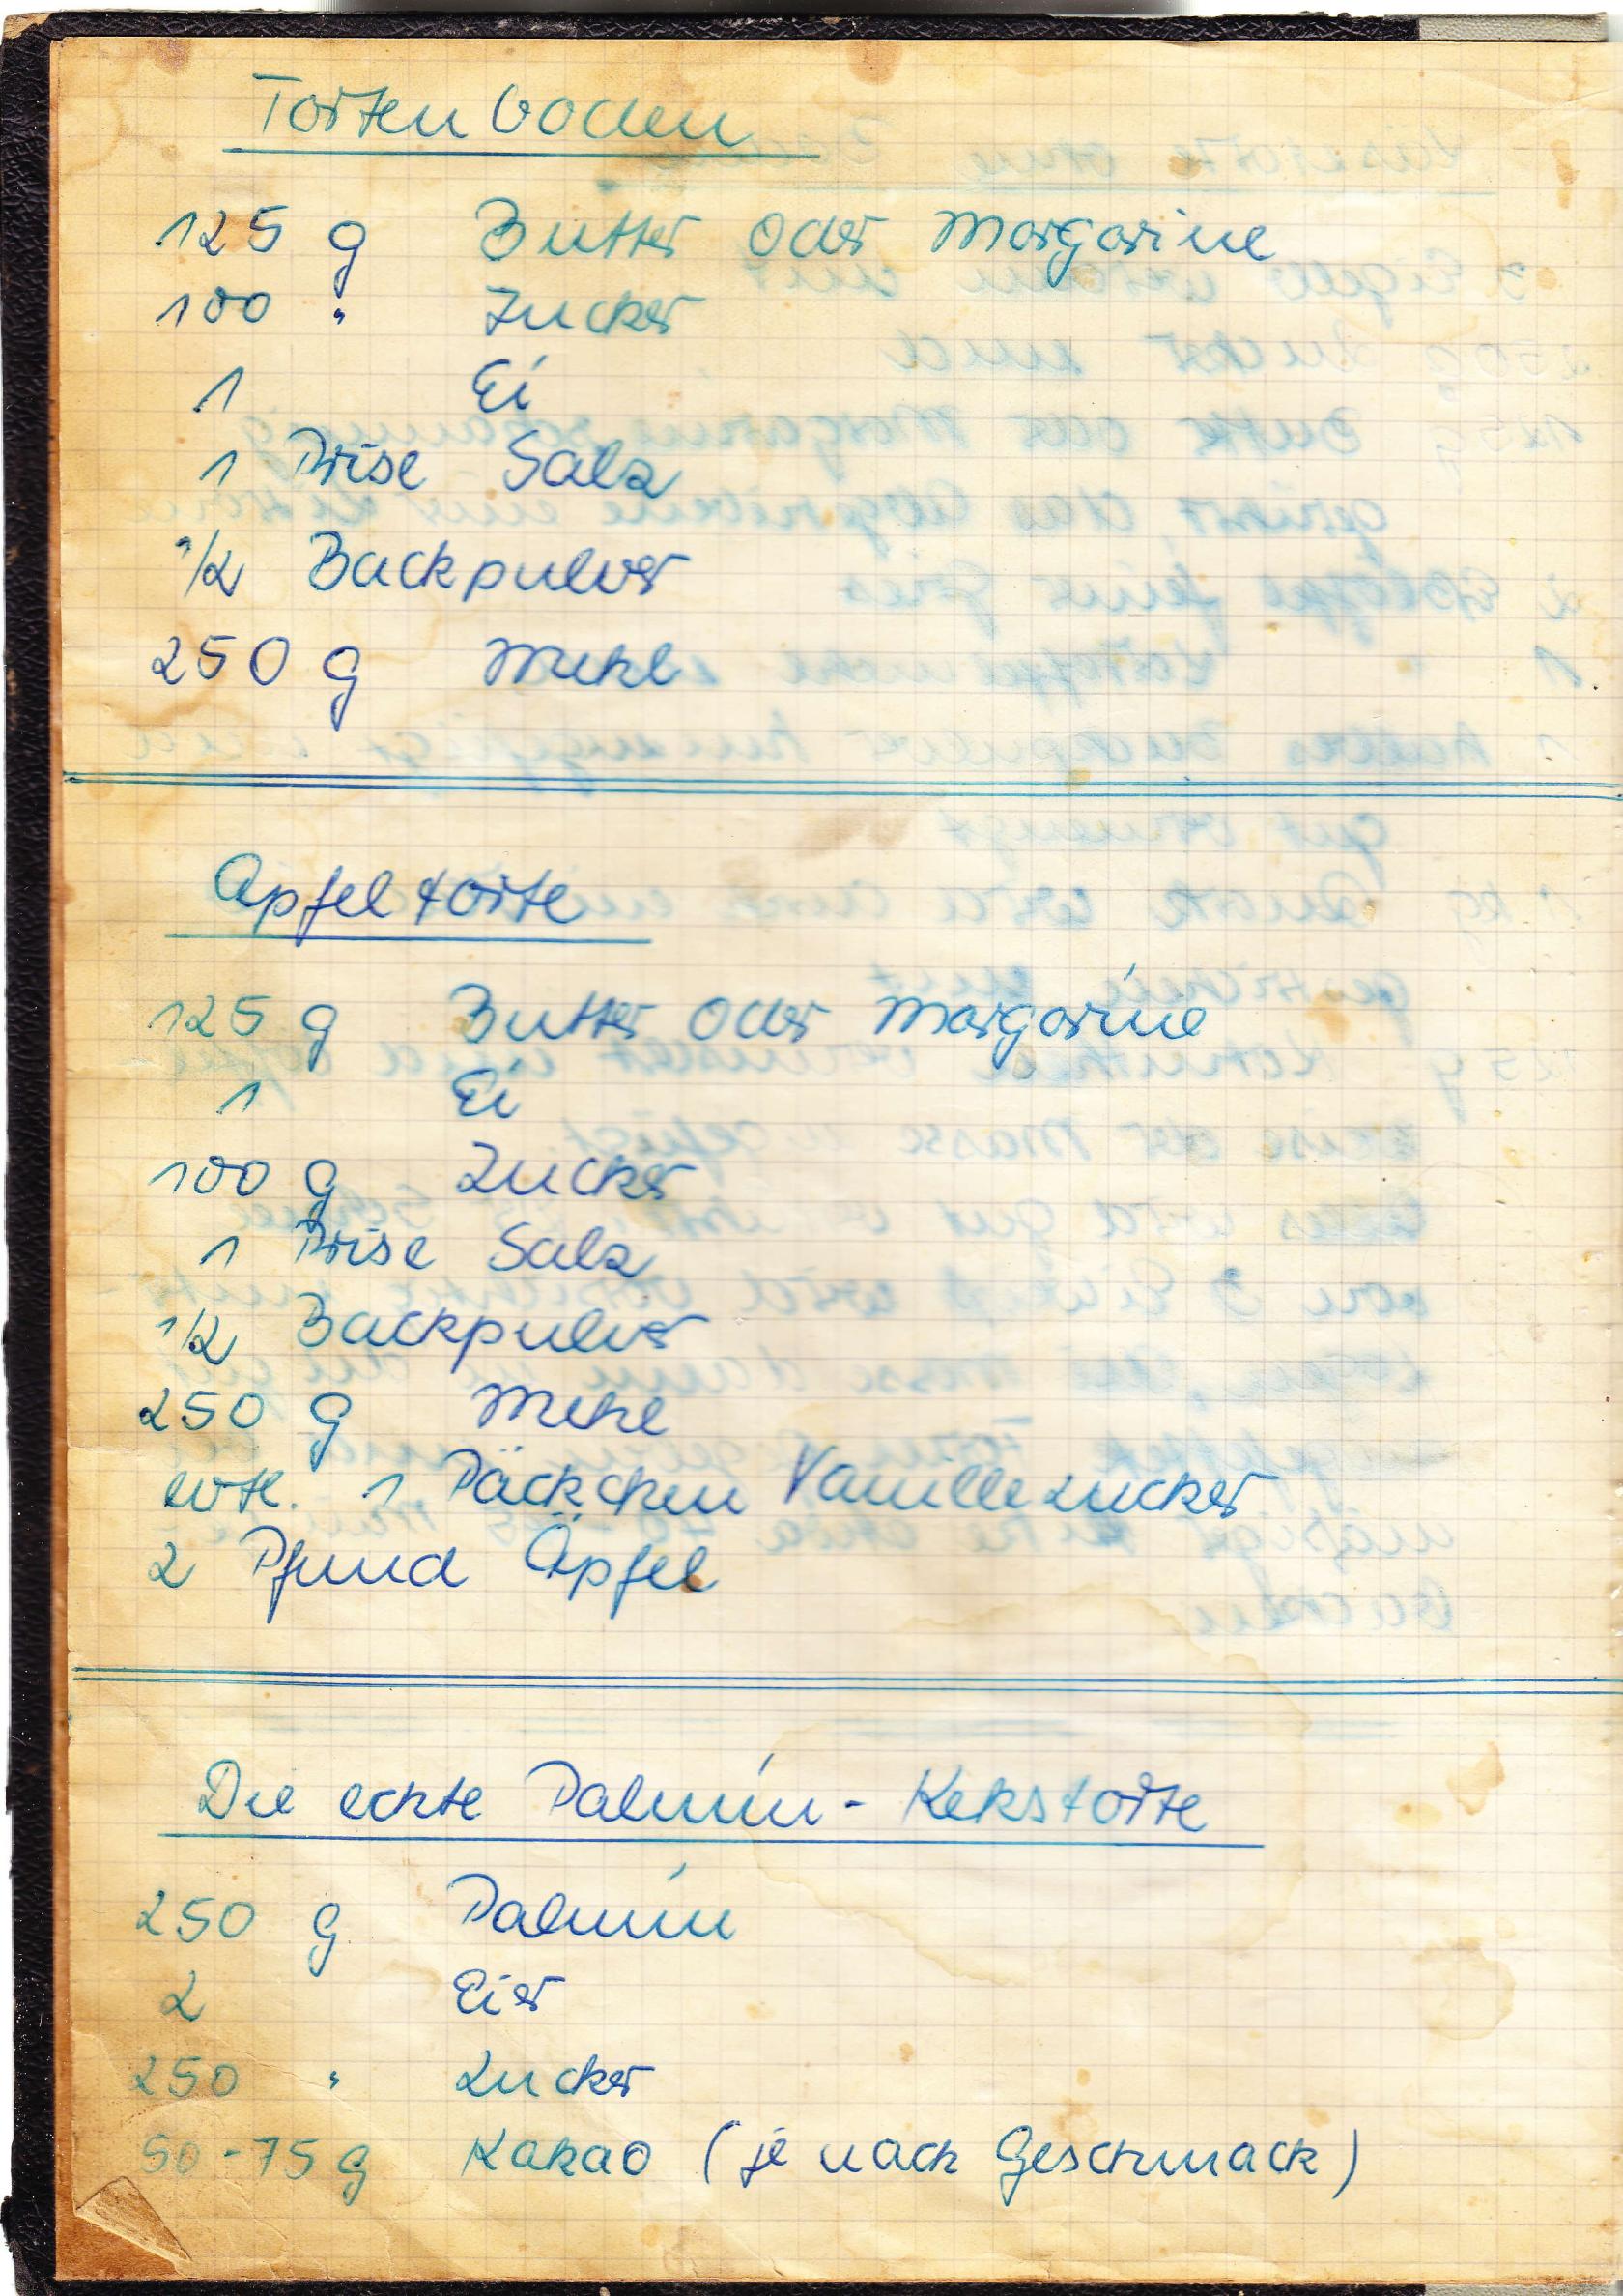 Tortenboden
125 g Butter oder Margarine
100 " Zucker
1 Ei
1 Prise Salz
1/2 Backpulver
250 g Mehl
Apfeltorte
125 g Butter oder Margarine
1 Ei
100 g Zucker
1 Prise Salz
1/2 Backpulver
250 g Mehl
evtl. 1 Päckchen Vanillezucker
2 Pfund Äpfel
Die echte Palmin-Kekstorte
250 g Palmin
2 Eier
250 " Zucker
50-75 g Kakao (je nach Geschmack)